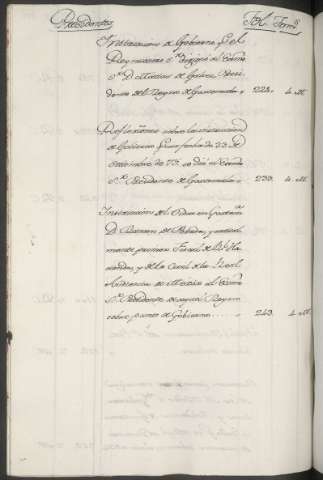 Presidentes Fol. Tom.s
Instruccion de Gobierno q.e el
Rey nuestro S.r dirigió al Exmo
S.r D. Matias de Galvez Presi-
dente del Reyno de Guatemala 224. 4.
Reflexiones sobre la instruccion
de Gobierno que en fecha de 23 de
de 73. se dió al Exmo
S.r Presidente de Guatemala 233. 4.
Instruccion del
D. Ramon de Posada, y
mente primer Fiscal de Rl Ha-
cienda, y de lo Civil de la Real
Audiencia de Mexico al Exmo
S.r Presidente de aquel Reyno
sobre puntos de Gobierno..... 243. 4.